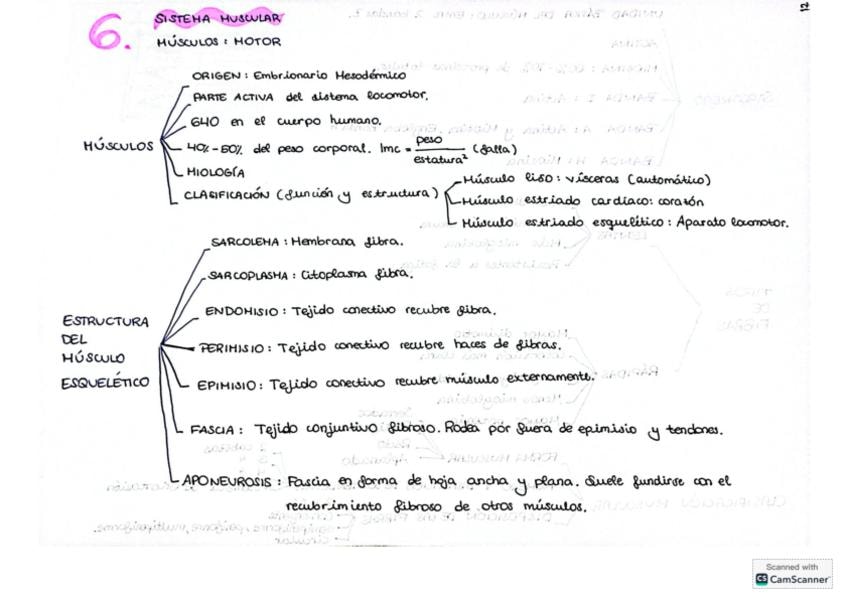 6. SISTEMA MUSCULAR
MÚSCULOS: MOTOR
ORIGEN: Embrionario Mesodérmico
PARTE ACTIVA del sistema locomotor.
640 en el cuerpo humano.
MÚSCULOS
40%-50% del peso corporal. Imc = peso / estatura² (falla)
MIOLOGÍA
CLASIFICACIÓN (función y estructura)
Músculo liso: vísceras (automático)
Músculo estriado cardíaco: corazón
Músculo estriado esquelético: Aparato locomotor.
SARCOLEMA: Membrana fibra.
SARCOPLASMA: Citoplasma fibra.
ENDOMISIO: Tejido conectivo recubre fibra.
ESTRUCTURA
DEL
MÚSCULO
ESQUELÉTICO
PERIMISIO: Tejido conectivo recubre haces de fibras.
EPIMISIO: Tejido conectivo recubre músculo externamente.
FASCIA: Tejido conjuntivo fibroso. Rodea por fuera de epimisio y tendones.
APONEUROSIS: Fascia en forma de hoja, ancha y plana. Suele fundirse con el
recubrimiento fibroso de otros músculos.
Scanned with
CS CamScanner